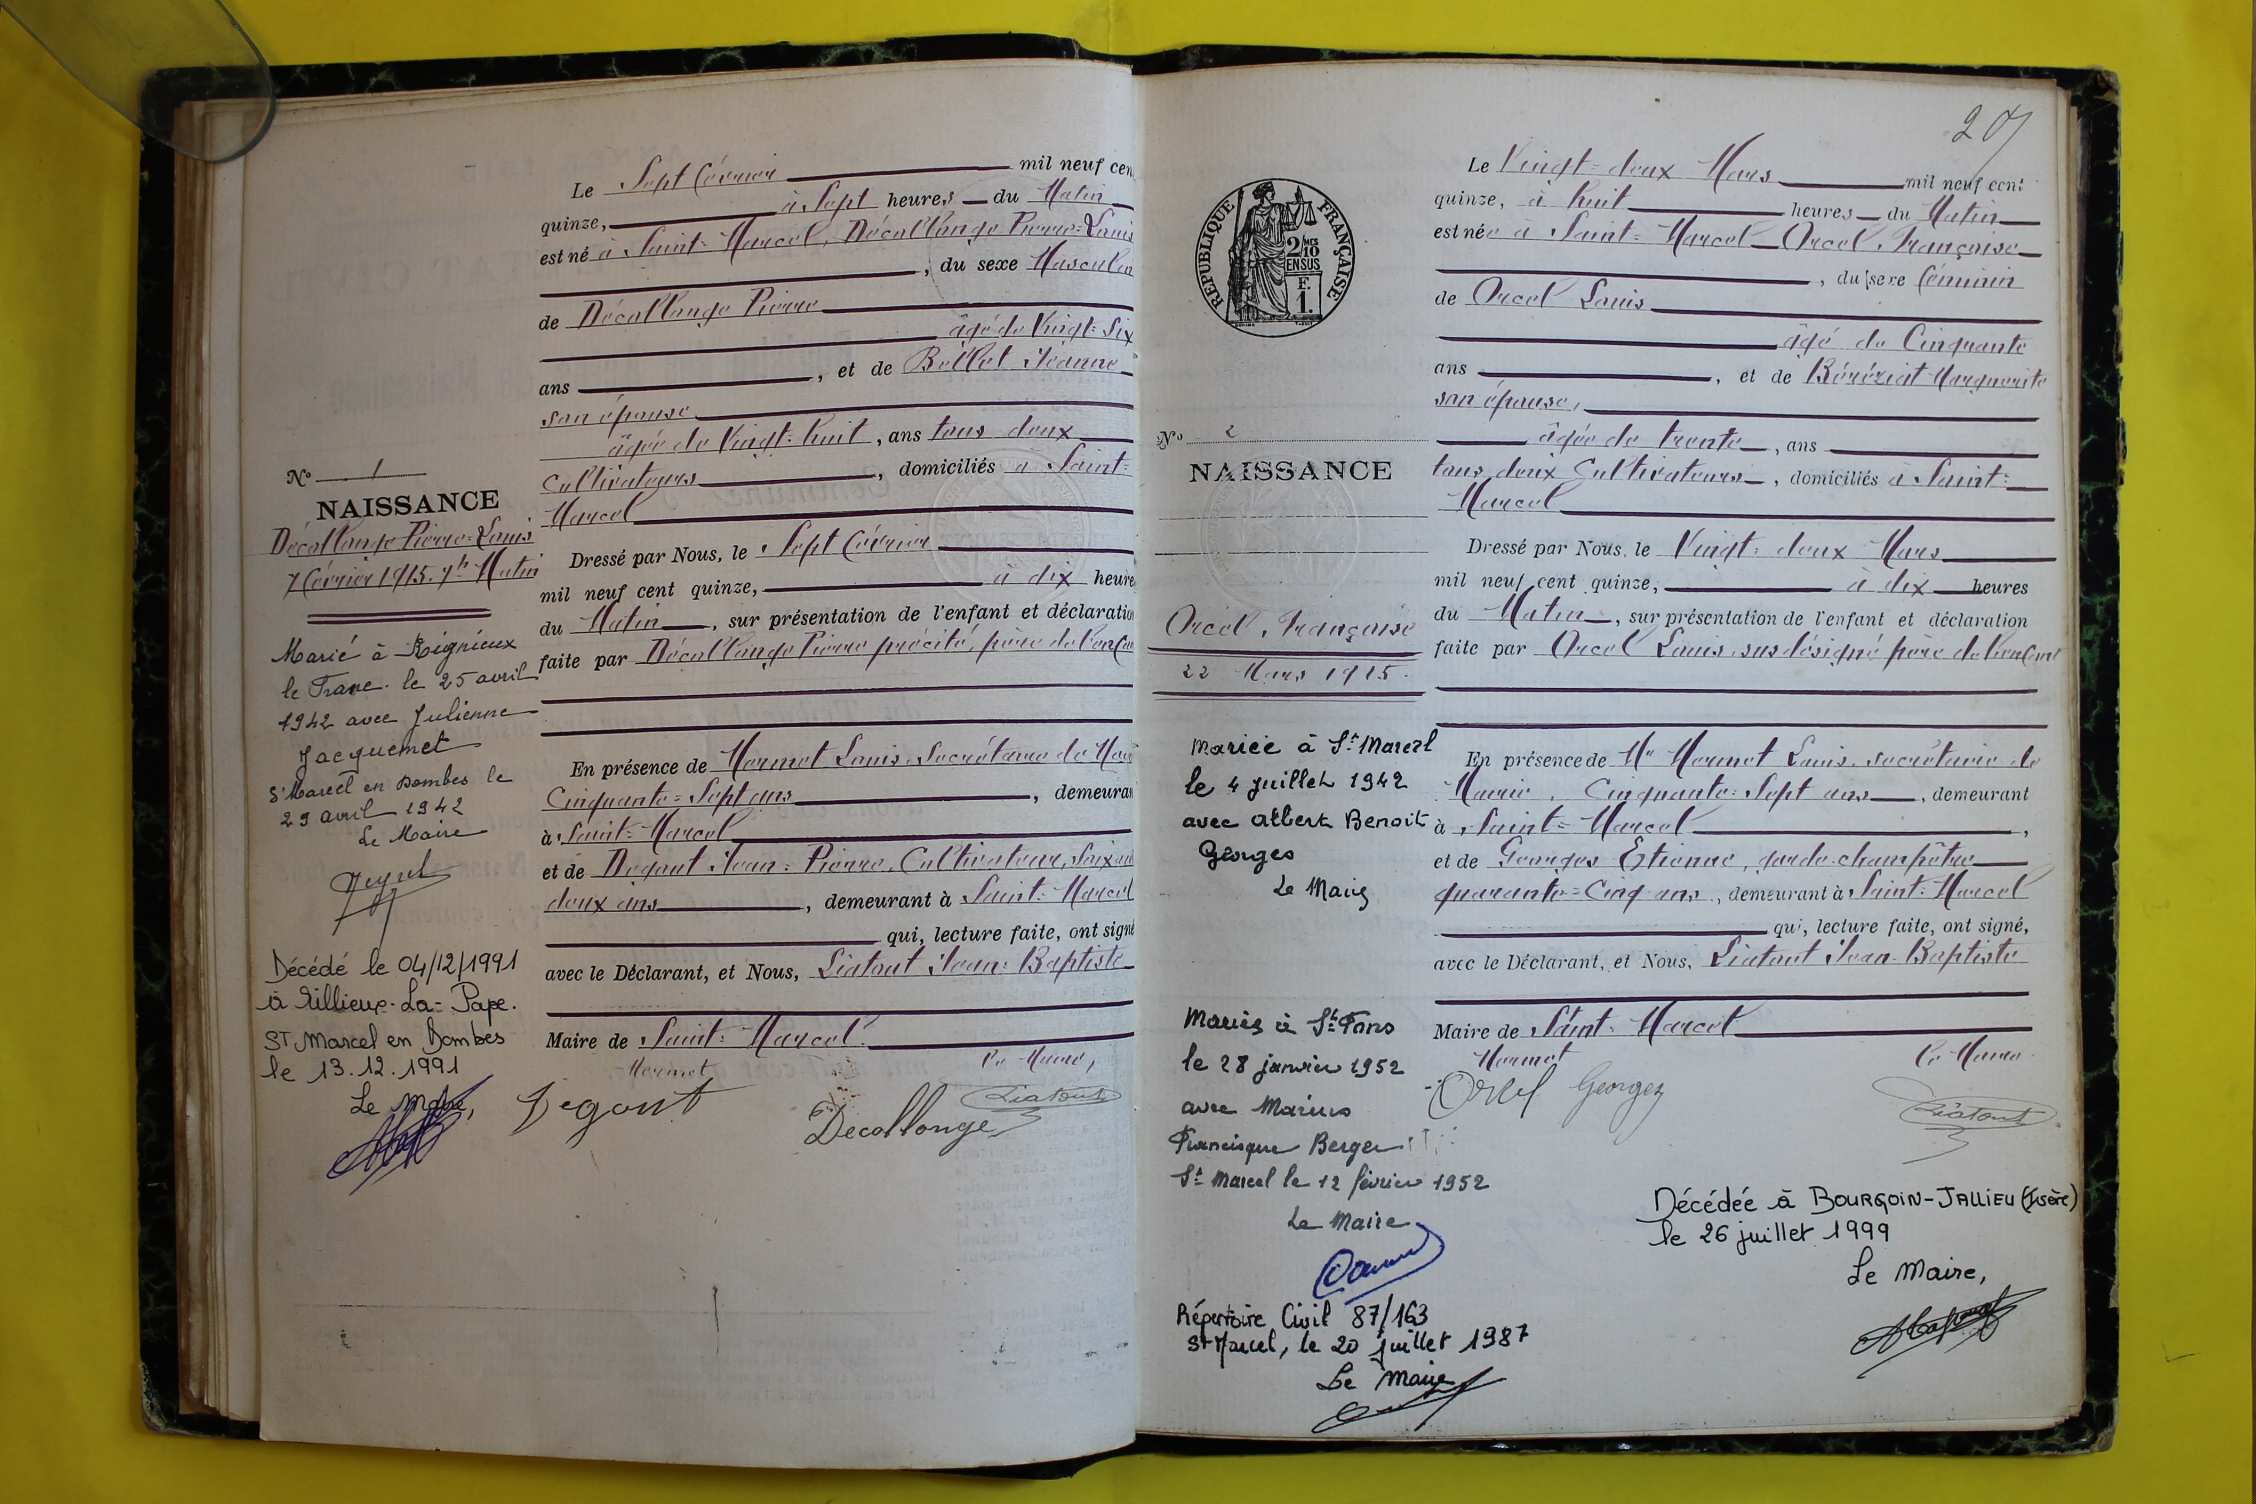 Le Sept Février mil neuf cen
quinze, à Sept heures du Matin
est né à Saint-Marcel, Décollange Pierre-Louis
, du sexe Masculin
de Décollange Pierre
âgé de Vingt-Six
ans , et de Bellet Jeanne
son épouse
âgée de Vingt-huit , ans tous deux
Cultivateurs , domiciliés à Saint-
Marcel
N° 1
NAISSANCE
Décollange Pierre-Louis
7 Février 1915. 7h Matin
Dressé par Nous, le Sept Février
mil neuf cent quinze, à dix heure
du Matin , sur présentation de l'enfant et déclaration
faite par Décollange Pierre précité, père de l'enfan
En présence de Mermet Louis, Secrétaire de Mair
Cinquante-Sept ans , demeuran
à Saint-Marcel
et de Degout Jean-Pierre, Cultivateur, Soixan
deux ans , demeurant à Saint-Marcel
qui, lecture faite, ont signé
avec le Déclarant, et Nous, Liatout Jean-Baptiste
Maire de Saint-Marcel.
Mermet Le Maire,
Degout Decollonge Liatout
Marié à Reignieux
le Franc. le 25 avril
1942 avec Julienne
Jacquemet
St Marcel en Dombes le
29 avril 1942
Le Maire
Décédé le 04/12/1991
à Rillieux-La-Pape.
ST Marcel en Dombes
le 13.12.1991
Le Maire,
207
Le Vingt-deux Mars mil neuf cent
quinze, à huit heures du Matin
est née à Saint-Marcel Orcel, Françoise
, du sexe féminin
de Orcel Louis
âgé de Cinquante
ans , et de Béréziat Marguerite
son épouse,
âgée de trente , ans
tous deux Cultivateurs , domiciliés à Saint-
Marcel
RÉPUBLIQUE FRANÇAISE
2/10 MES
EN SUS
F.
1.
N° 2
NAISSANCE
Orcel, Françoise
22 Mars 1915.
Dressé par Nous, le Vingt-deux Mars
mil neuf cent quinze, à dix heures
du Matin , sur présentation de l'enfant et déclaration
faite par Orcel Louis, susdésigné père de l'enfant
En présence de Mr Mermet Louis, secrétaire de
Mairie, Cinquante-Sept ans , demeurant
à Saint-Marcel ,
et de Georges Etienne, garde-champêtre
quarante-Cinq ans , demeurant à Saint-Marcel
qui, lecture faite, ont signé,
avec le Déclarant, et Nous, Liatout Jean-Baptiste
Maire de Saint-Marcel
Mermet Le Maire.
Orcel Georges Liatout
Mariée à St Marcel
le 4 juillet 1942
avec Albert Benoit
Georges
Le Maire
Mariée à St Fons
le 28 janvier 1952
avec Marius
Francisque Berger
St Marcel le 12 février 1952
Le Maire
Répertoire Civil 87/163
St Marcel, le 20 juillet 1987
Le Maire
Décédée à BOURGOIN-JALLIEU (Isère)
le 26 juillet 1999
Le Maire,